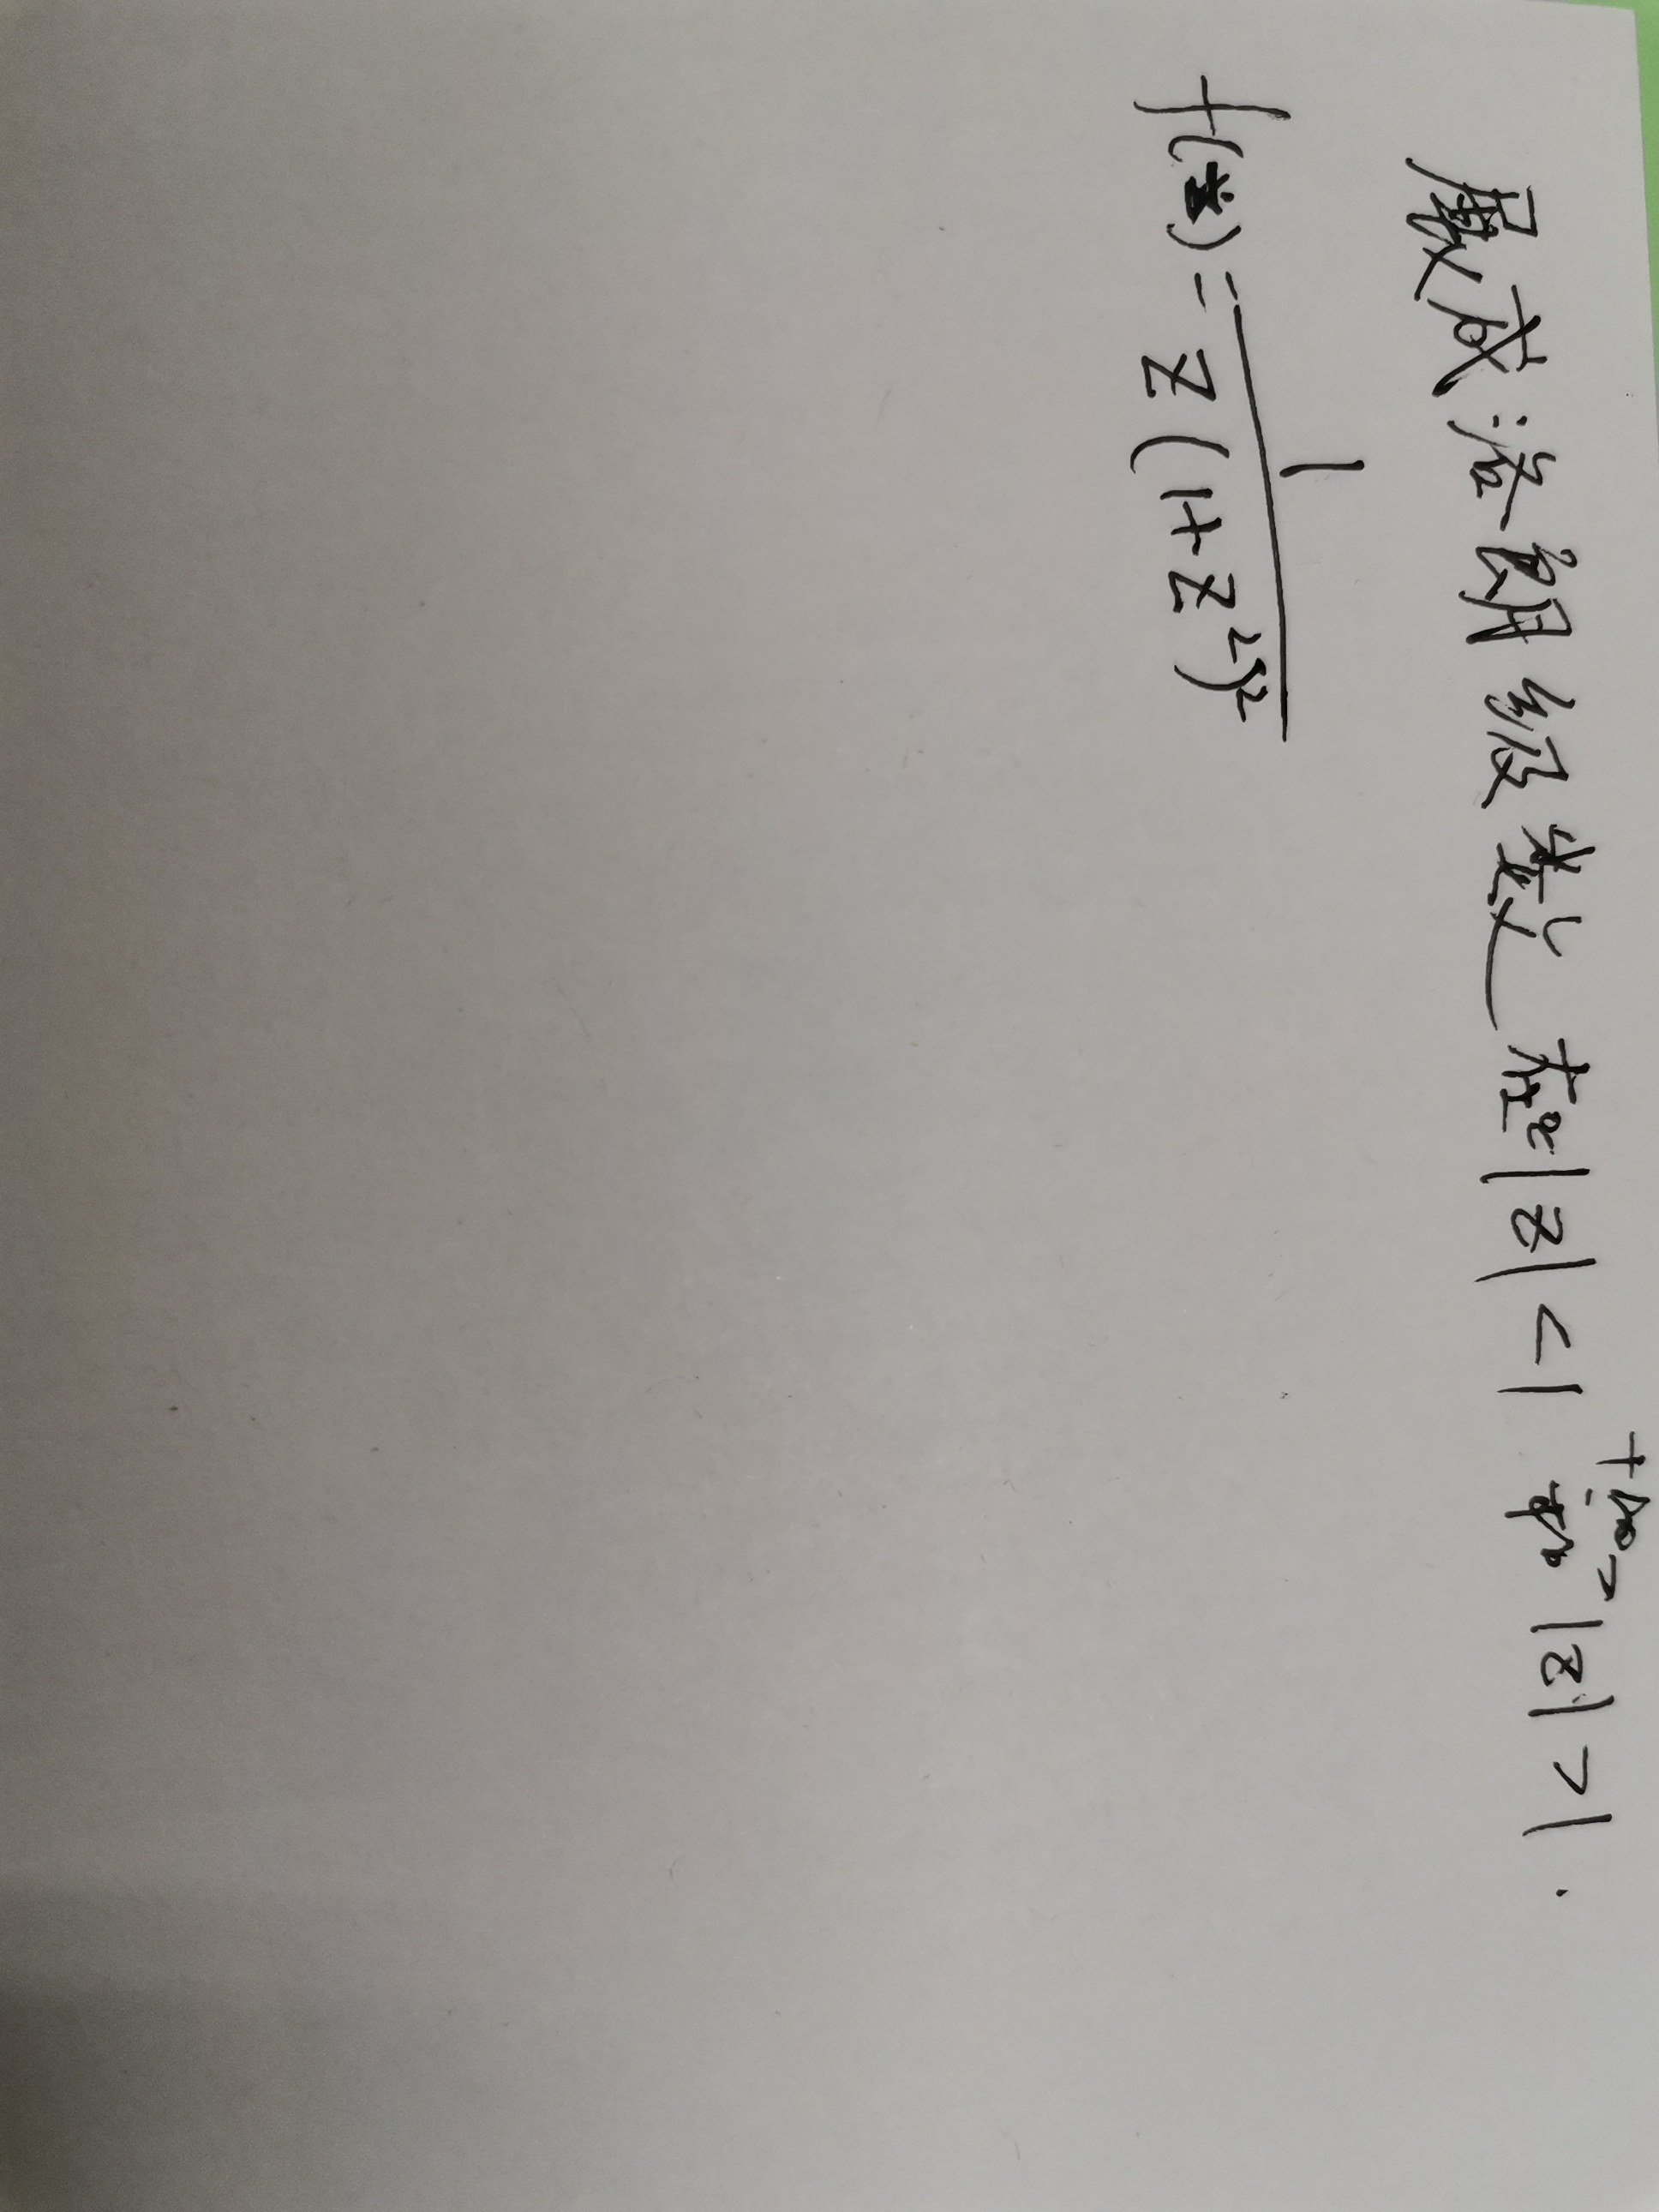 展成洛朗级数 在 |z|<1 和 +∞>|z|>1.
f(z) = 1 / z(1+z²)²